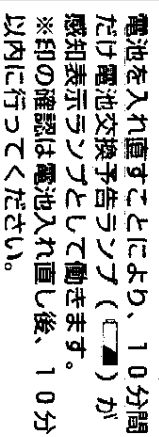 電池を入れ直すことにより、10分間
だけ電池交換予告ランプ（ ）が
感知表示ランプとして働きます。
※印の確認は電池入れ直し後、10分
以内に行ってください。